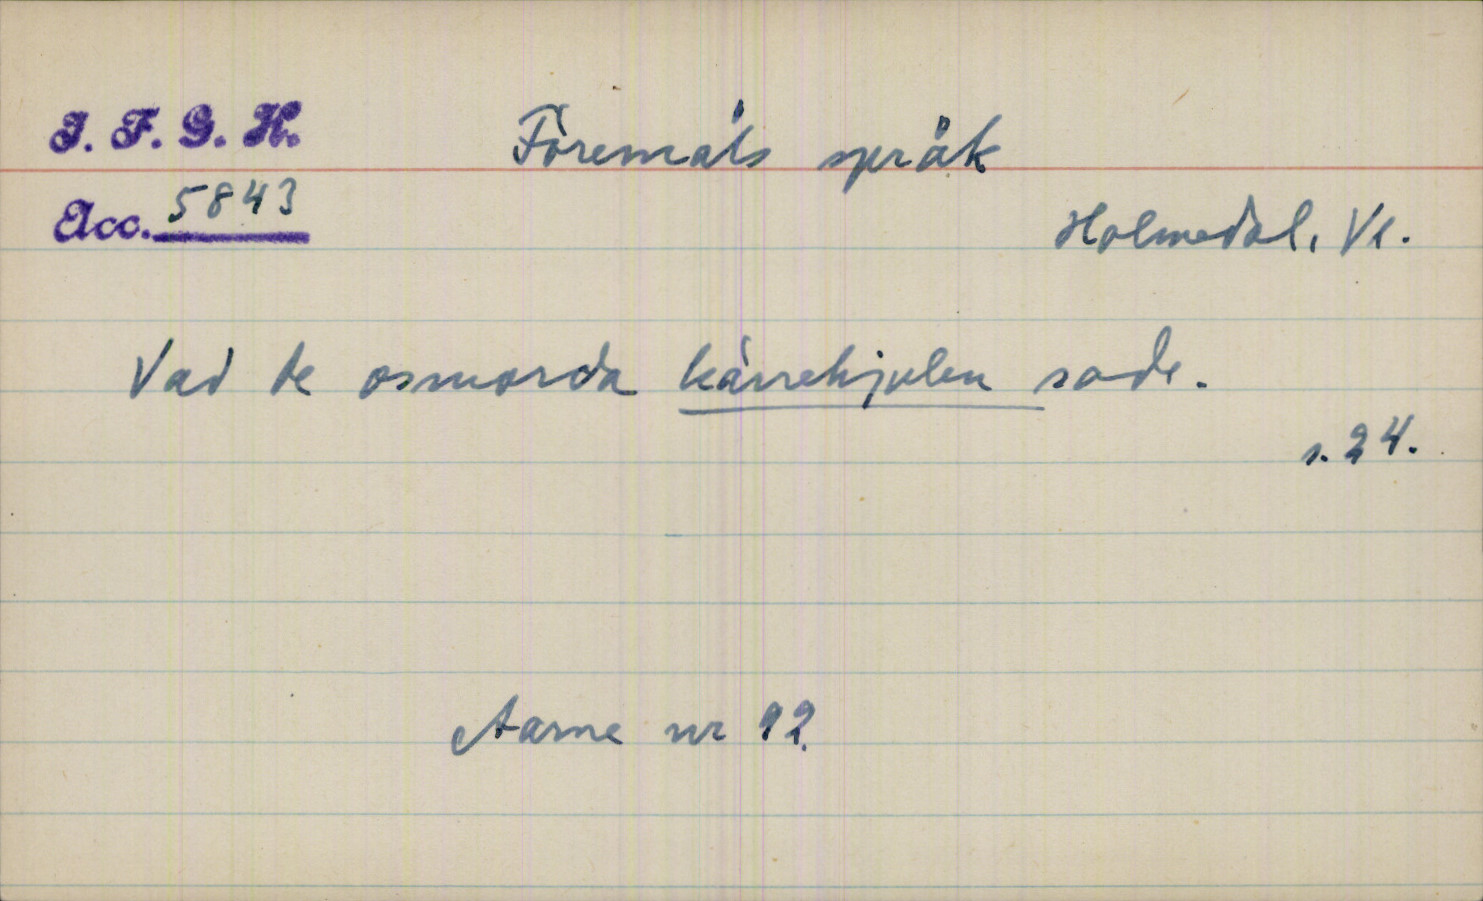 I. F. G. H.
Föremåls språk
Acc. 5843
Holmedal, Vl.
Vad de osmorda kärrehjulen sade.
s. 24.
Aarne nr 92.